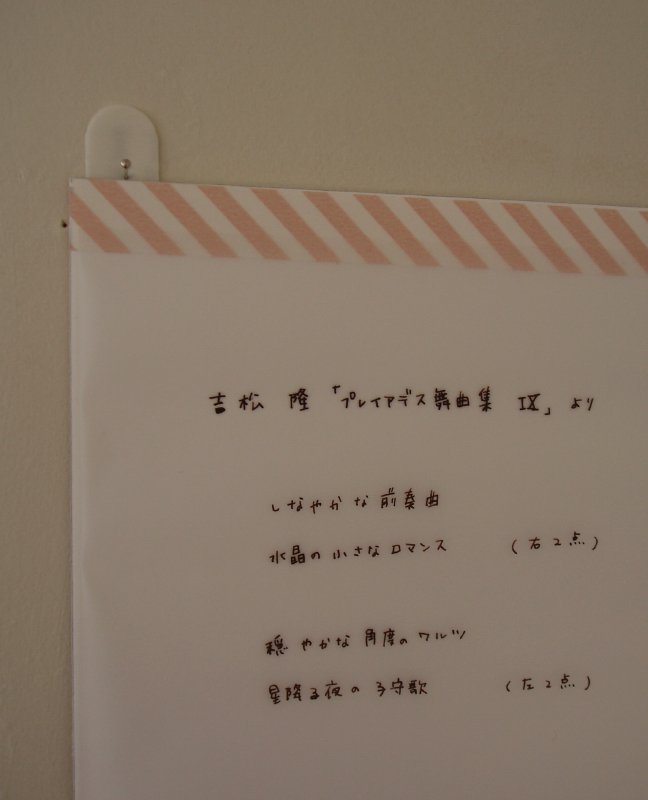 吉松 隆 「プレイアデス舞曲集 IX」より
しなやかな前奏曲
水晶の小さなロマンス (右2点)
穏やかな角度のワルツ
星降る夜の子守歌 (左2点)